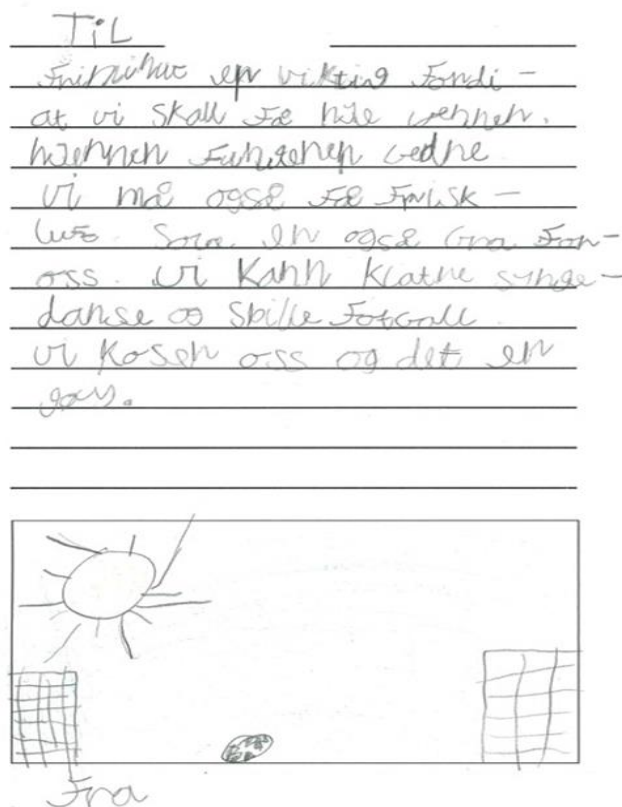 TiL
Friminut er viktig Fordi -
at vi skall Fæ hile vennen.
hJernen Fungerer bedre
vi må også Fæ Frisk -
luft Sora er også bra For-
oss. vi kann klatre synge -
danse og spille Fotball
vi koser oss og det er
gøy.
Fra